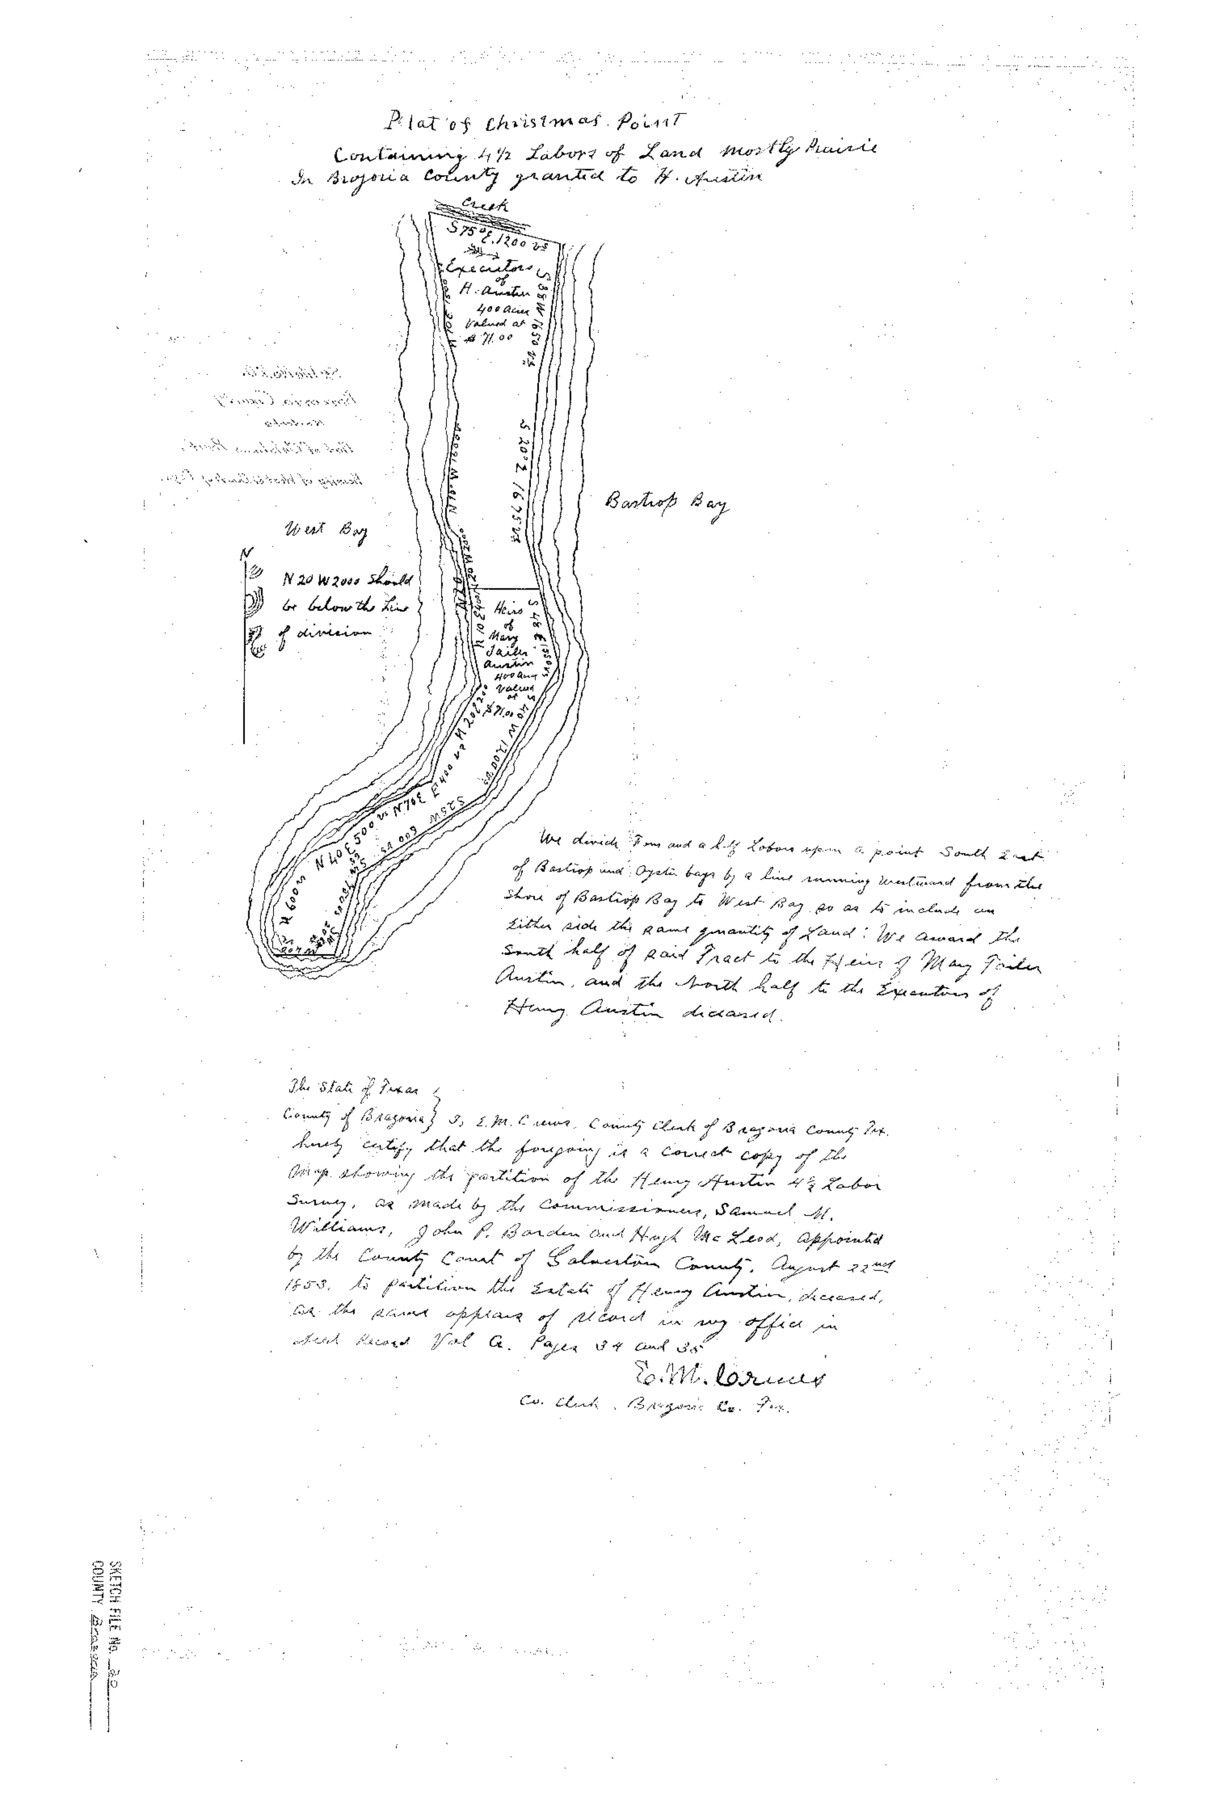 Plat of Christmas Point
Containing 4½ Labors of Land mostly Prairie
In Brazoria County granted to H. Austin
Creek
S 75° E. 1200 vs
Executors
of
H. Austin
400 Acres
Valued at
$ 71.00
S 38 W 1650 vs
S 20° E 1675 vs
Bastrop Bay
West Bay
N
N 20 W 2000 Should
be below the Line
of division
Heirs
of
Mary
Tailer
Austin
400 Acres
Valued
at
$ 71.00
S 48 E
W 1200 vs
S 25 W 600 vs
N 40 E 500 vs
N 600 vs
We divide Four and a half Labors upon a point South East
of Bastrop and Oyster bays by a line running Westward from the
Shore of Bastrop Bay to West Bay so as to include on
Either side the same quantity of Land: We award the
South half of said Tract to the Heirs of Mary Tailer
Austin, and the North half to the Executors of
Henry Austin diceased.
The State of Texas
County of Brazoria } I, E. M. Crews, County Clerk of Brazoria County Tex.
hereby certify that the foregoing is a correct copy of the
Map showing the partition of the Henry Austin 4½ Labor
Survey, as made by the Commissioners, Samuel M.
Williams, John P. Borden and Hugh McLeod, appointed
by the County Court of Galveston County, August 22nd
1853, to partition the Estate of Henry Austin, deceased,
as the same appears of record in my office in
Deed Record Vol G. Pages 34 and 35
E. M. Crews
Co. Clerk, Brazoria Co. Tex.
SKETCH FILE No. 20
COUNTY Brazoria